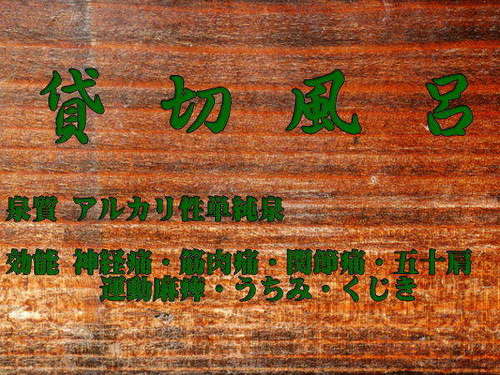 貸切風呂
泉質 アルカリ性単純泉
効能 神経痛・筋肉痛・関節痛・五十肩
運動麻痺・うちみ・くじき